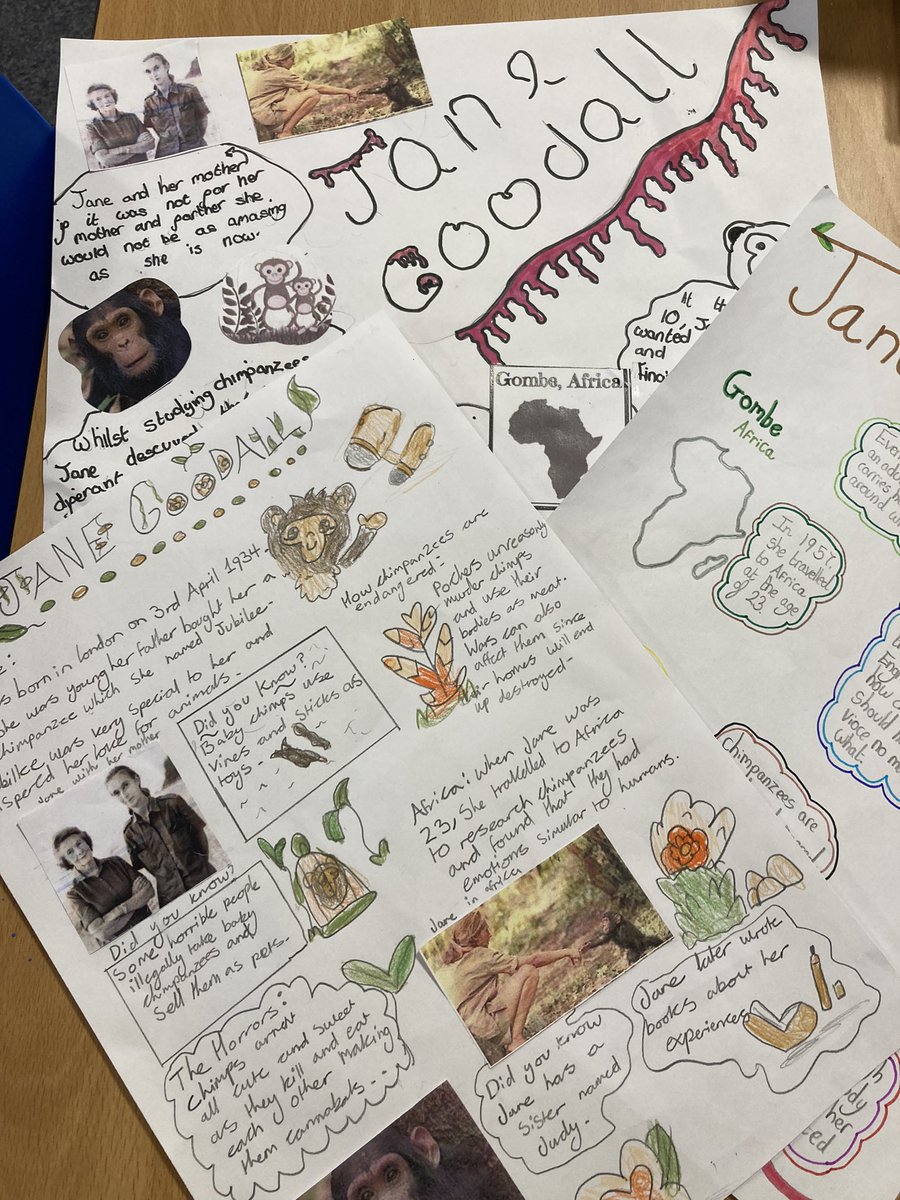 Jane
Goodall
Jane and her mother
it was not por her
mother and parther she
would not be as amasing
as she is now.
whilst studying chimpanzees
Jane
At
10,
wanted
and
Gombe, Africa
JANE GOODALL
born in london on 3rd April 1934.
she was young her father bought her a
chimpanzee which she named Jubilee-
was very special to her and
her love for animals-
Jane with her mother
Did you know?
Baby chimps use
vines and sticks as
toys-
How chimpanzees are
endangered-
Pochers unreasonly
murder chimps
and use their
bodies as meat.
Wars can also
affect them since
their homes will end
up destroyed-
Africa: when Jane was
23, she travelled to Africa
to research chimpanzees
and found that they had
emotions simular to humans.
Jane
in africa
Did you know?
Some horrible people
illegally take baby
chimpanzees and
sell them as pets-
The Horrors:
Chimps arnot
all cute and sweet
as they kill and eat
each other making
them cannobals...
Did you know
Jane has a
sister named
Judy.
Jane later wrote
books about her
experiences
Jan
Gombe
Africa
In 1957,
she travelled
to Africa
at the age
of 23.
carries
around
how
should
voice no
what.
chimpanzees are
her